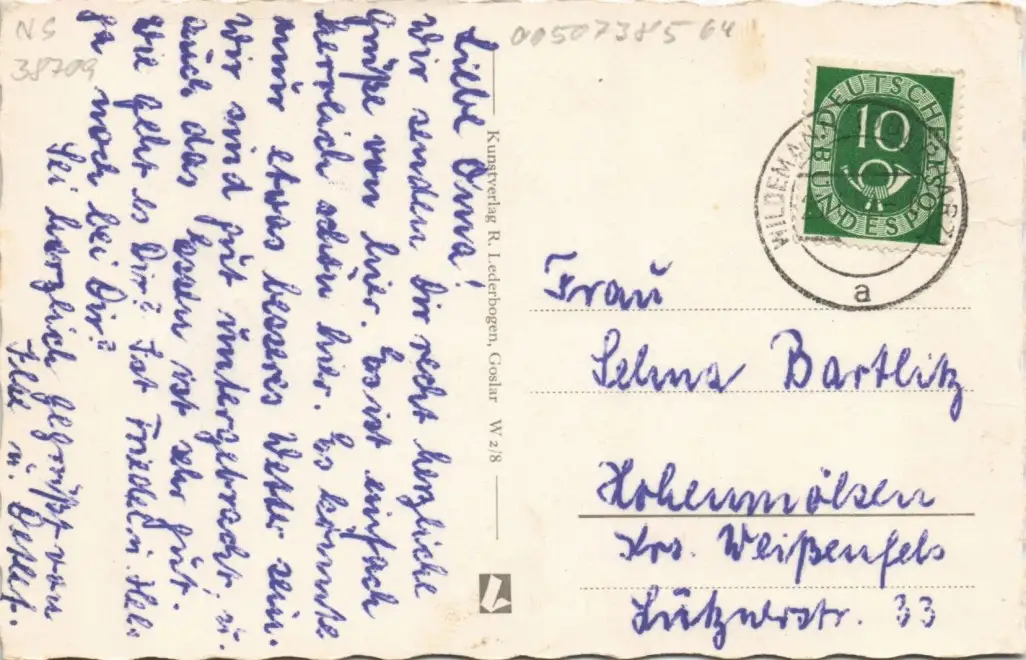 NS
38709
0050738564
Liebe Omma!
Wir senden Dir recht herzliche
Grüße von hier. Es ist einfach
herrlich schön hier. Es könnte
nur etwas besseres Wetter sein.
Wir sind gut untergebracht, u.
auch das Essen ist sehr gut.
Wie geht es Dir? Ist Friedel u.
ja noch bei Dir?
Sei herzlich gegrüßt von
Ilse u. Detlef.
Kunstverlag R. Lederbogen, Goslar W 2/8
DEUTSCHE
BUNDESPOST
10
WILDEMANN
a
Frau
Selma Bartlitz
Hohenmölsen
Krs. Weißenfels
Lütznerstr. 33